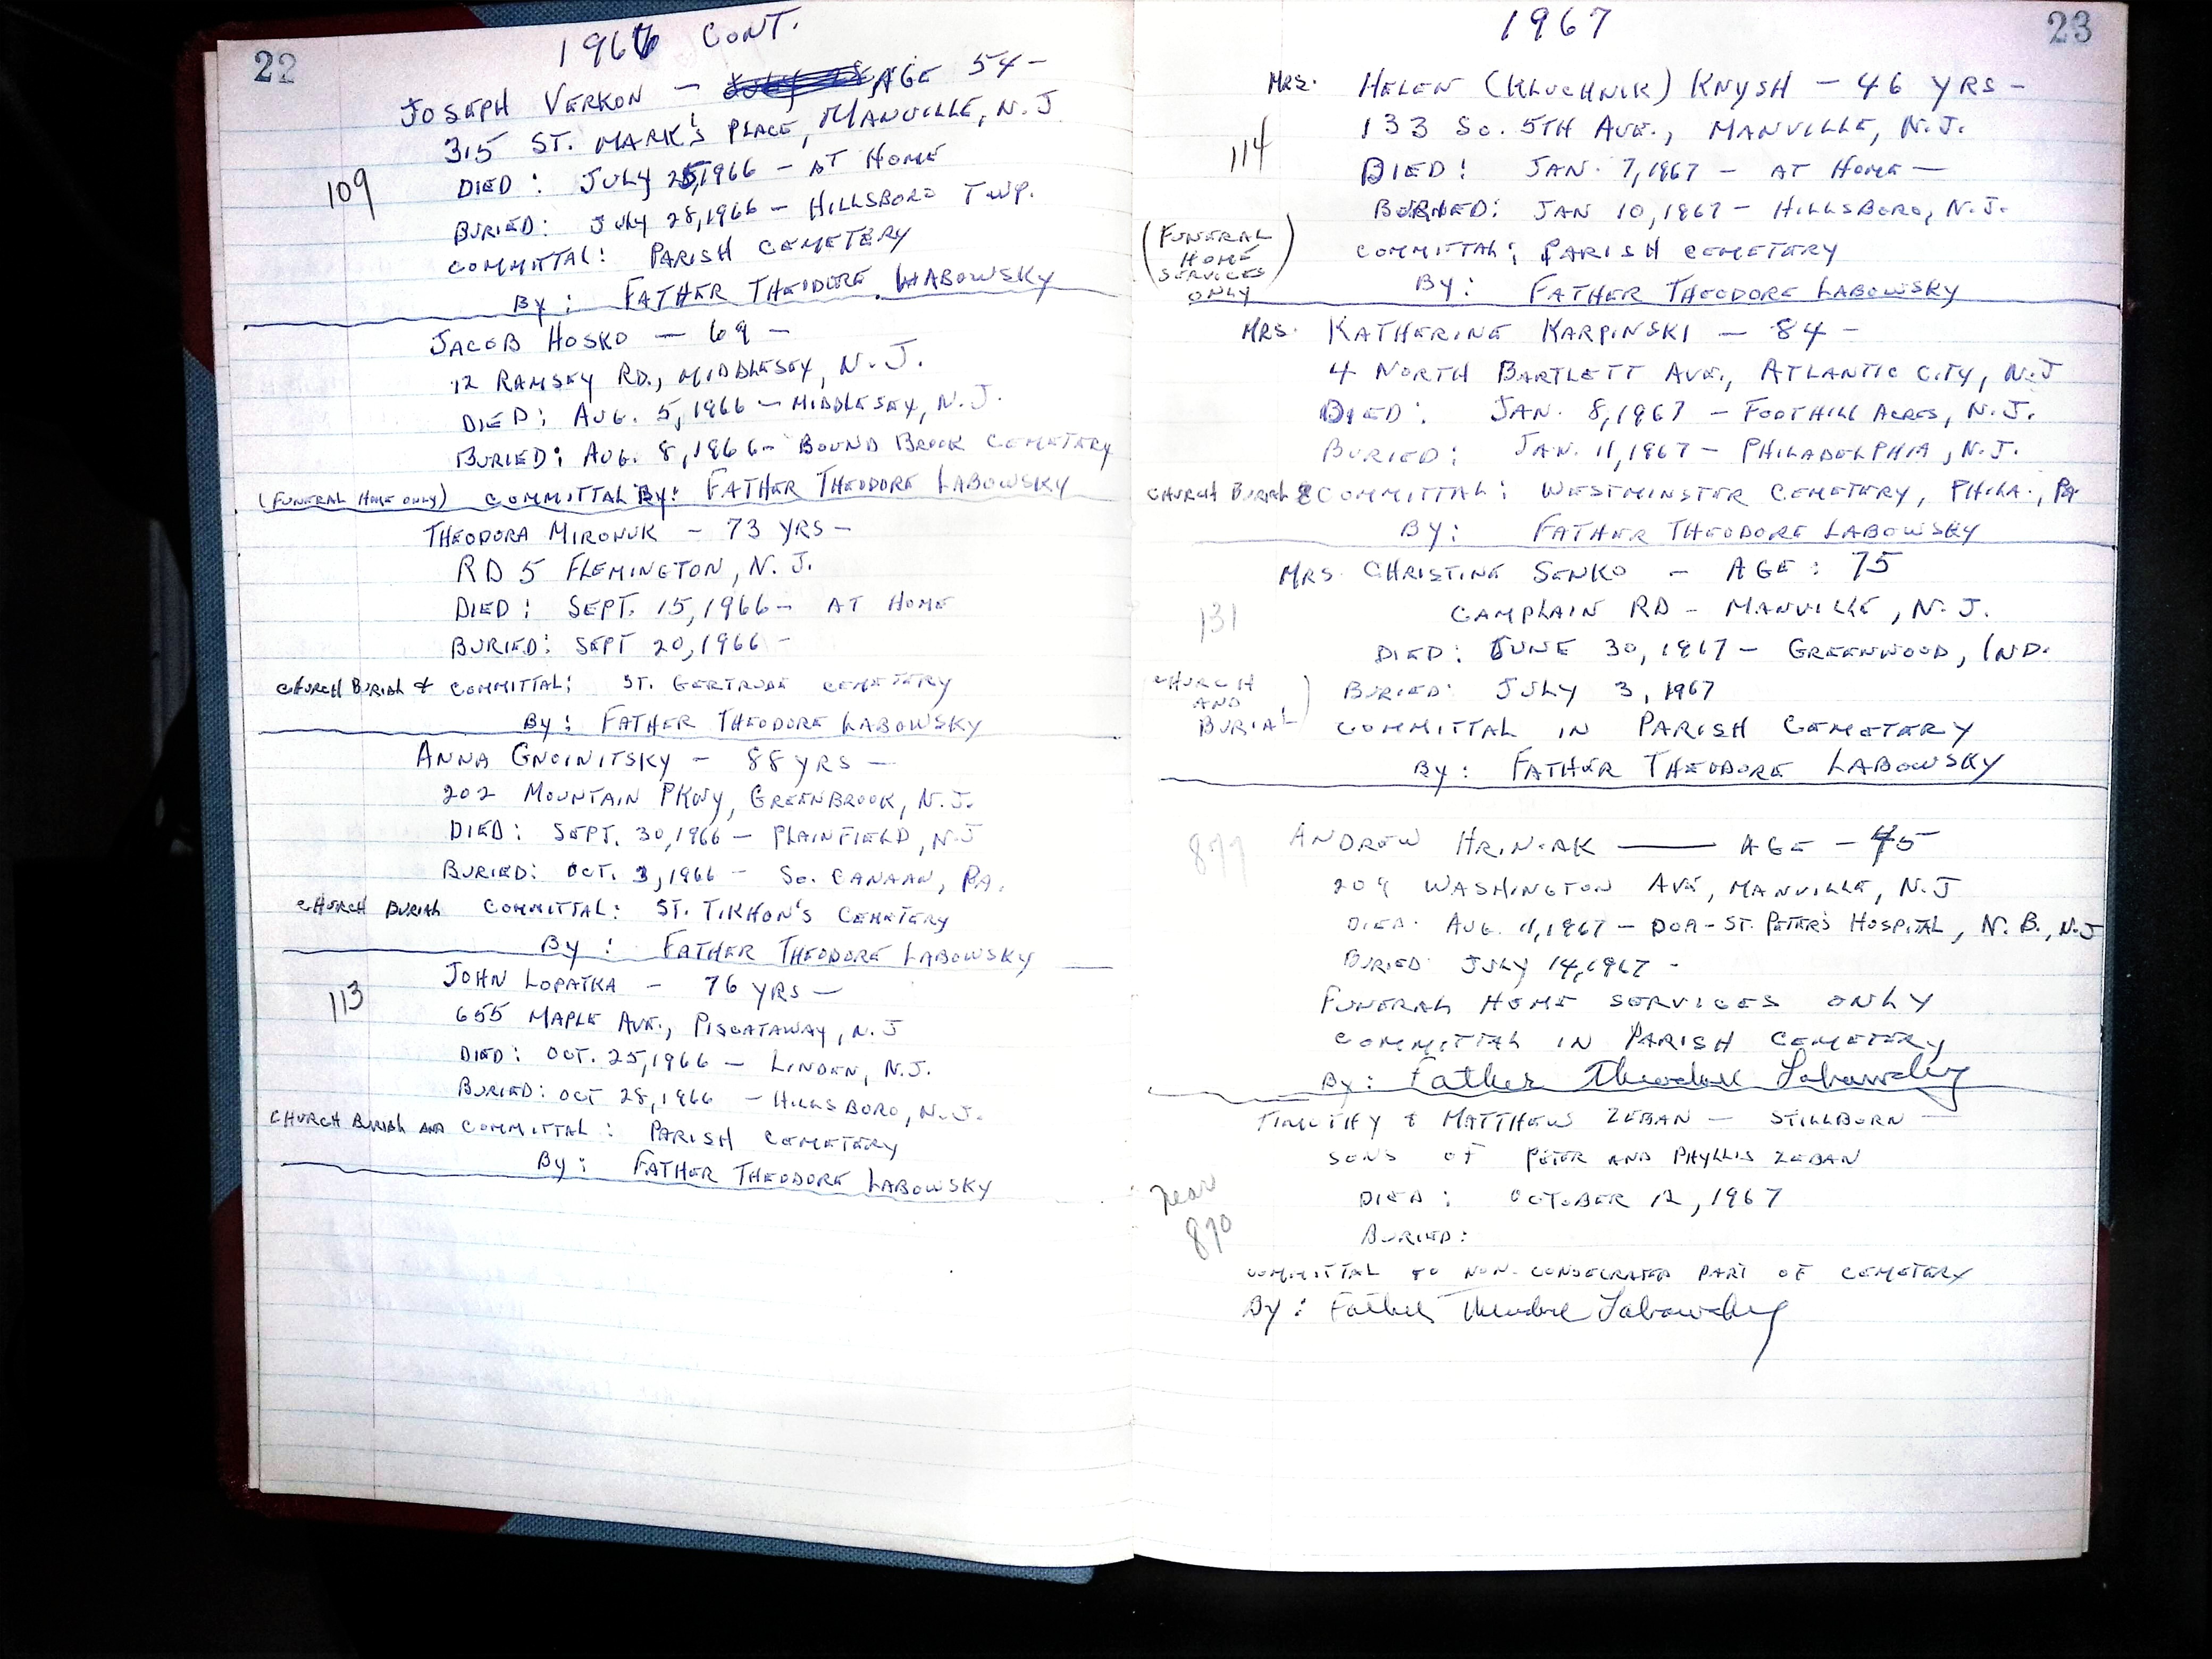 22
1966 CONT.
JOSEPH VERKON — AGE 54 —
315 ST. MARK'S PLACE, MANVILLE, N.J
109
DIED: JULY 25, 1966 — AT HOME
BURIED: JULY 28, 1966 — HILLSBORO TWP.
COMMITTAL: PARISH CEMETERY
BY: FATHER THEODORE LABOWSKY
JACOB HOSKO — 69 —
12 RAMSEY RD., MIDDLESEX, N.J.
DIED: AUG. 5, 1966 — MIDDLESEX, N.J.
BURIED: AUG. 8, 1966 — BOUND BROOK CEMETERY
(FUNERAL HOME ONLY) COMMITTAL BY: FATHER THEODORE LABOWSKY
THEODORA MIRONUK — 73 YRS —
RD 5 FLEMINGTON, N.J.
DIED: SEPT. 15, 1966 — AT HOME
BURIED: SEPT 20, 1966 —
CHURCH BURIAL & COMMITTAL: ST. GERTRUDE CEMETERY
BY: FATHER THEODORE LABOWSKY
ANNA GNOINITSKY — 88 YRS —
202 MOUNTAIN PKWY, GREENBROOK, N.J.
DIED: SEPT. 30, 1966 — PLAINFIELD, N.J
BURIED: OCT. 3, 1966 — SO. CANAAN, PA.
CHURCH BURIAL COMMITTAL: ST. TIKHON'S CEMETERY
BY: FATHER THEODORE LABOWSKY
JOHN LOPATKA — 76 YRS —
113
655 MAPLE AVE., PISCATAWAY, N.J
DIED: OCT. 25, 1966 — LINDEN, N.J.
BURIED: OCT 28, 1966 — HILLSBORO, N.J.
CHURCH BURIAL AND COMMITTAL: PARISH CEMETERY
BY: FATHER THEODORE LABOWSKY
1967
23
MRS. HELEN (KLUCHNIK) KNYSH — 46 YRS —
133 SO. 5TH AVE., MANVILLE, N.J.
114
DIED: JAN. 7, 1967 — AT HOME —
BURIED: JAN 10, 1967 — HILLSBORO, N.J.
(FUNERAL HOME SERVICES ONLY)
COMMITTAL: PARISH CEMETERY
BY: FATHER THEODORE LABOWSKY
MRS. KATHERINE KARPINSKI — 84 —
4 NORTH BARTLETT AVE., ATLANTIC CITY, N.J
DIED: JAN. 8, 1967 — FOOTHILL ACRES, N.J.
BURIED: JAN. 11, 1967 — PHILADELPHIA, N.J.
CHURCH BURIAL & COMMITTAL: WESTMINSTER CEMETERY, PHILA., PA
BY: FATHER THEODORE LABOWSKY
MRS. CHRISTINE SENKO — AGE: 75
131
CAMPLAIN RD — MANVILLE, N.J.
DIED: JUNE 30, 1967 — GREENWOOD, IND.
CHURCH AND BURIAL)
BURIED: JULY 3, 1967
COMMITTAL IN PARISH CEMETERY
BY: FATHER THEODORE LABOWSKY
877
ANDREW HRINIAK — AGE — 45
209 WASHINGTON AVE, MANVILLE, N.J
DIED: AUG. 11, 1967 — DOA — ST. PETER'S HOSPITAL, N.B., N.J
BURIED: JULY 14, 1967 —
FUNERAL HOME SERVICES ONLY
COMMITTAL IN PARISH CEMETERY
By: Father Theodore Labowsky
TIMOTHY & MATTHEW ZEBAN — STILLBORN —
SONS OF PETER AND PHYLLIS ZEBAN
near 870
DIED: OCTOBER 12, 1967
BURIED:
COMMITTAL TO NON-CONSECRATED PART OF CEMETERY
By: Father Theodore Labowsky